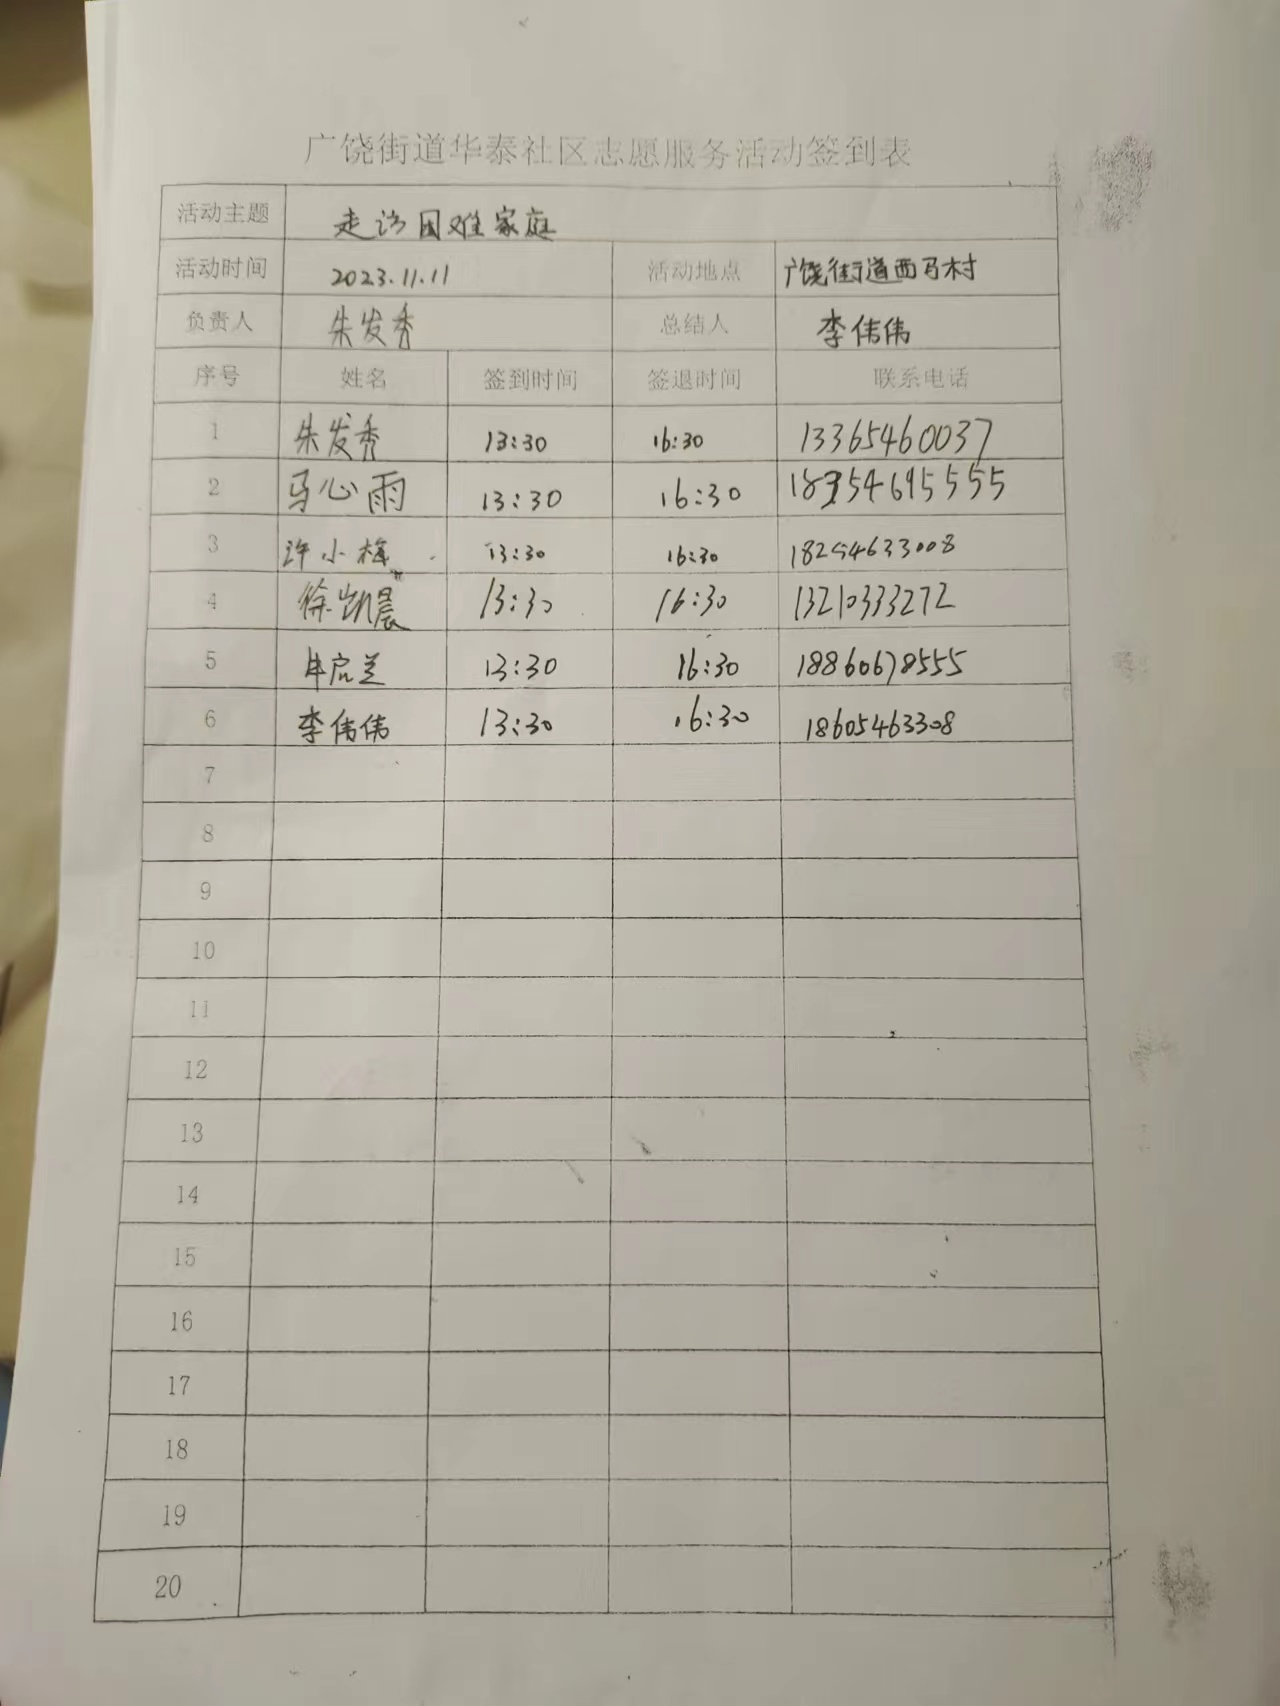 广饶街道华泰社区志愿服务活动签到表
活动主题 走访困难家庭
活动时间 2023.11.11 活动地点 广饶街道西马村
负责人 朱发秀 总结人 李伟伟
序号 姓名 签到时间 签退时间 联系电话
1 朱发秀 13:30 16:30 13365460037
2 马心雨 13:30 16:30 18354695555
3 许小梅 13:30 16:30 18254633008
4 徐凯晨 13:30 16:30 13210333272
5 启芝 13:30 16:30 18860678555
6 李伟伟 13:30 16:30 18605463308
7
8
9
10
11
12
13
14
15
16
17
18
19
20